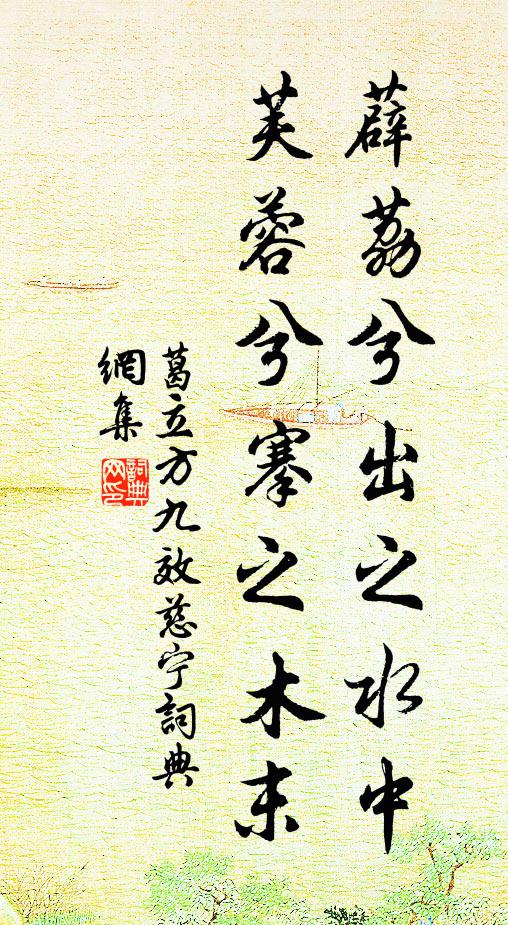 薜荔兮出之水中
芙蓉兮搴之木末
葛立方九效慈宁詞典
網集
詞典
网印